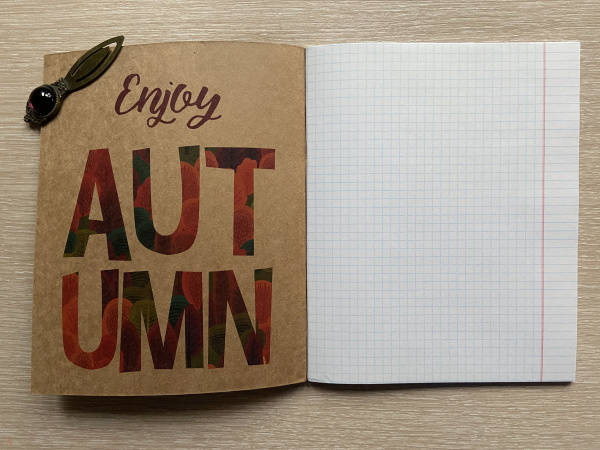 Enjoy
AUT
UMN